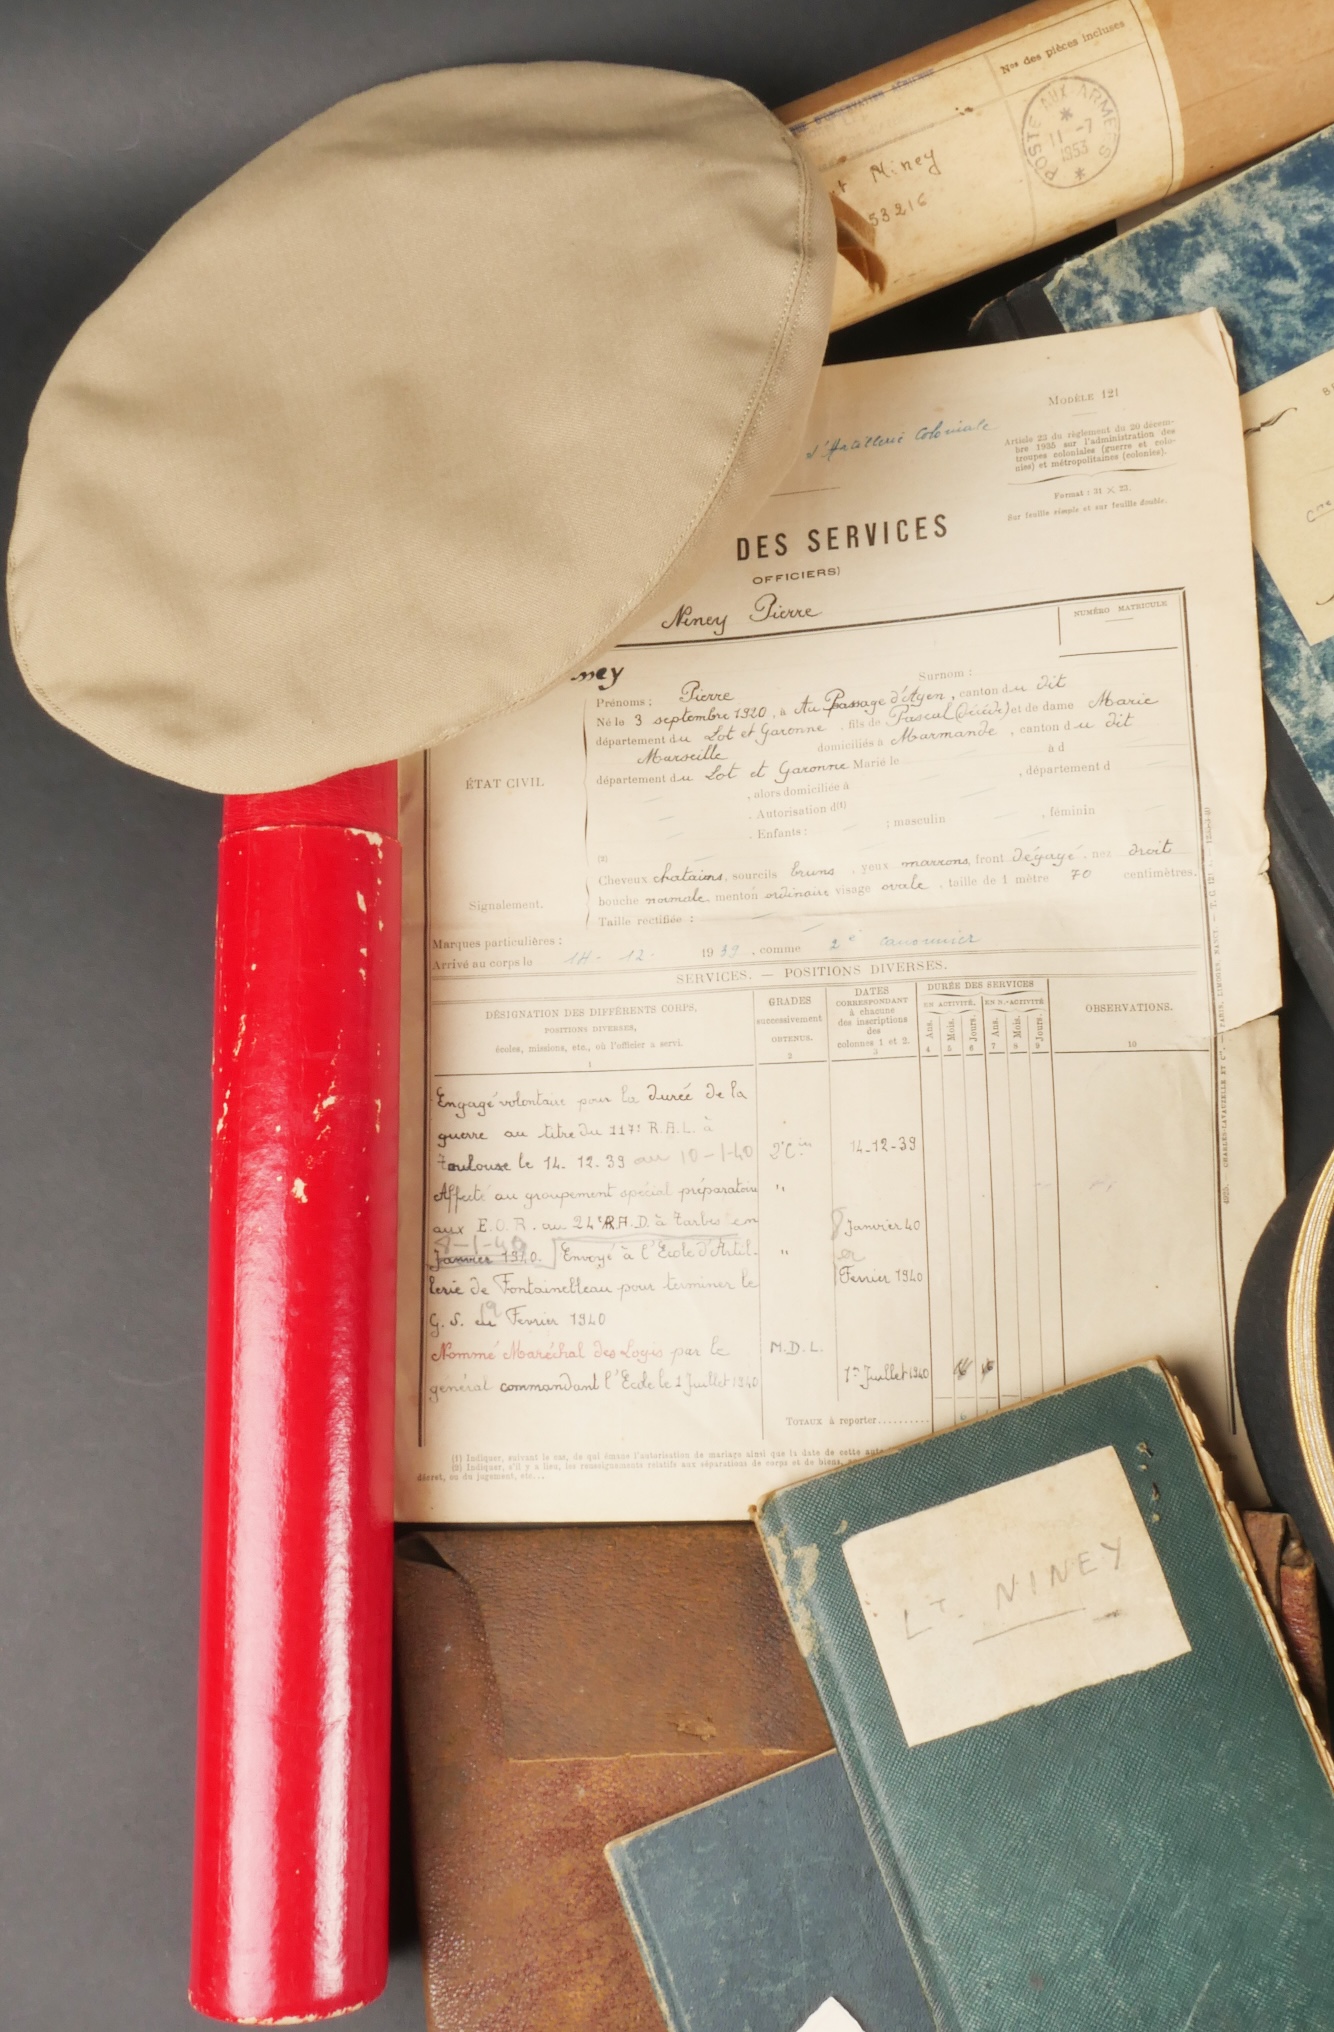 Nos des pièces incluses
POSTE AUX ARMÉES
11-7
1953
Niney
53216
MODÈLE 121
d'Artillerie Coloniale
Article 23 du règlement du 20 décem-
bre 1935 sur l'administration des
troupes coloniales (guerre et colo-
nies) et métropolitaines (colonies).
Format : 31 × 23.
Sur feuille simple et sur feuille double.
DES SERVICES
OFFICIERS)
Niney Pierre
NUMÉRO MATRICULE
ney
Surnom :
Prénoms : Pierre
Né le 3 septembre 1920, à Au Passage d'Agen, canton du dit
département du Lot et Garonne, fils de Pascal (décédé) et de dame Marie
Marseille domiciliés à Marmande, canton du dit
département du Lot et Garonne Marié le à d
ÉTAT CIVIL
, alors domiciliée à , département d
. Autorisation d(1)
. Enfants : ; masculin , féminin
(2)
Cheveux chatains, sourcils bruns, yeux marrons, front dégagé, nez droit
bouche normale, menton ordinaire visage ovale, taille de 1 mètre 70 centimètres.
Signalement.
Taille rectifiée :
Marques particulières :
Arrivé au corps le 14 - 12 - 1939, comme 2e canonnier
SERVICES. — POSITIONS DIVERSES.
DÉSIGNATION DES DIFFÉRENTS CORPS,
POSITIONS DIVERSES,
écoles, missions, etc., où l'officier a servi.
1
GRADES
successivement
OBTENUS.
2
DATES
CORRESPONDANT
à chacune
des inscriptions
des
colonnes 1 et 2.
3
DURÉE DES SERVICES
EN ACTIVITÉ. EN N.-ACTIVITÉ
Ans. Mois. Jours. Ans. Mois. Jours.
4 5 6 7 8 9
OBSERVATIONS.
10
Engagé volontaire pour la durée de la
guerre au titre du 117e R.A.L. à
Toulouse le 14-12-39 au 10-1-40 14-12-39
Affecté au groupement spécial préparatoire "
aux E.O.R. au 24e R.A.D. à Tarbes en 8 Janvier 40
8-1-40
Janvier 1940. Envoyé à l'Ecole d'Artil- "
lerie de Fontainebleau pour terminer le Fevrier 1940
G.S. Fevrier 1940
Nommé Maréchal des Logis par le M.D.L.
général commandant l'Ecole le 1 Juillet 1940 1er Juillet 1940
TOTAUX à reporter..........
(1) Indiquer, suivant le cas, de qui émane l'autorisation de mariage ainsi que la date de cette
(2) Indiquer, s'il y a lieu, les renseignements relatifs aux séparations de corps et de biens,
décret, ou du jugement, etc...
CHARLES-LAVAUZELLE ET Cie. — PARIS, LIMOGES, NANCY.
LT. NINEY